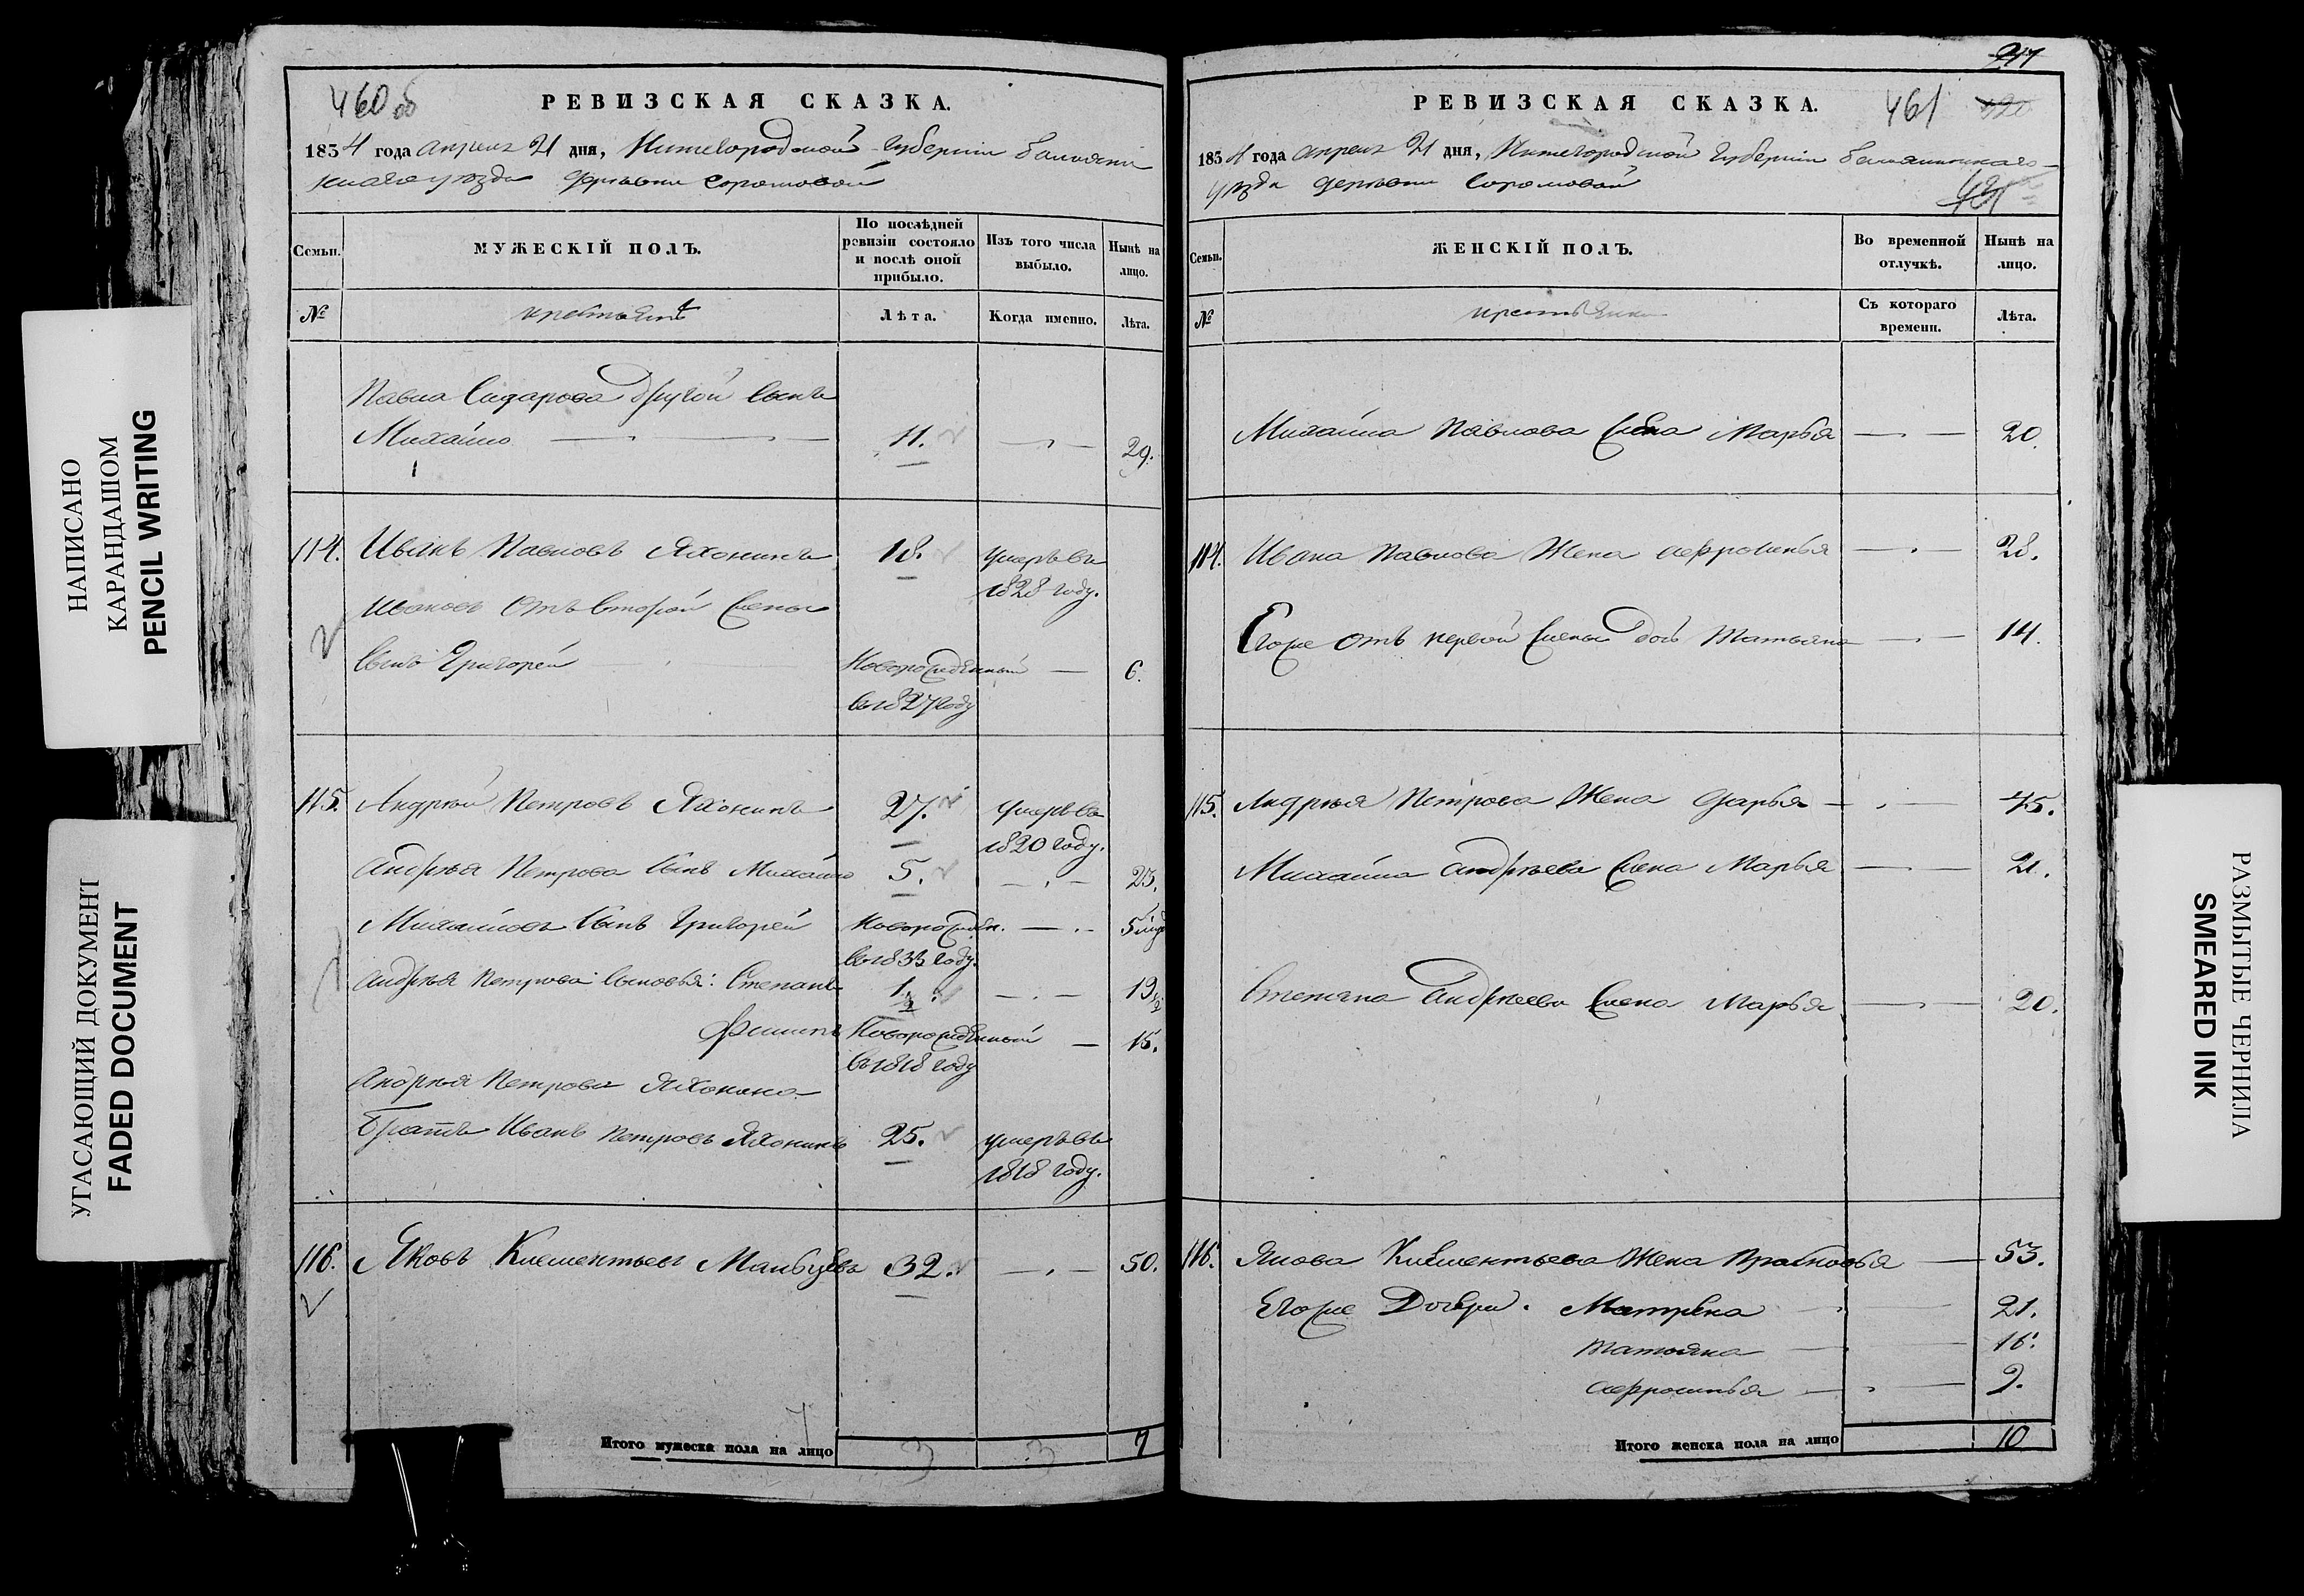 НАПИСАНО
КАРАНДАШОМ
PENCIL WRITING
УГАСАЮЩИЙ ДОКУМЕНТ
FADED DOCUMENT
460 об
РЕВИЗСКАЯ СКАЗКА.
1834 года апреля 21 дня, Нижегородской Губернии Балахнин
скаго уезда деревни Сормовой
Семьи.
МУЖЕСКІЙ ПОЛЪ.
По послѣдней ревизіи состояло и послѣ оной прибыло.
Изъ того числа выбыло.
Нынѣ на лицо.
№
крестьянъ
Лѣта.
Когда именно.
Лѣта.
Павла Сидарова другой сынъ
Михайло 11. 29.
114. Иванъ Павловъ Яхонинъ 18. умеръ въ
1828 году.
Ивановъ отъ второй жены
сынъ Григорей Новорожденный 6.
въ 1827 году
115. Андрей Петровъ Яхонинъ 27. умеръ въ
1820 году.
Андрея Петрова сынъ Михайло 5. 23.
Михайловъ сынъ Григорей Новорожден. 5
въ 1833 году.
Андрея Петрова сыновья: Степанъ 1 1/2 19 1/2
Филипъ Новорожденный 15.
въ 1818 году
Андрея Петрова Яхонина
братъ Иванъ Петровъ Яхонинъ 25. умеръ въ
1818 году.
116. Яковъ Клементьевъ Мальцевъ 32. 50.
7
Итого мужеска пола на лицо 3 3 7
217
РЕВИЗСКАЯ СКАЗКА. 461 420
1834 года апреля 21 дня, Нижегородской Губернии Балахнинскаго
уезда деревни Сормовой
421
Семьи.
ЖЕНСКІЙ ПОЛЪ.
Во временной отлучкѣ.
Нынѣ на лицо.
№
крестьянки
Съ котораго времени.
Лѣта.
Михайла Павлова жена Марья 20.
114. Ивана Павлова жена Афросинья 28.
Егоже отъ первой жены дочь Татьяна 14.
115. Андрея Петрова жена Дарья 45.
Михайла Андреева жена Марья 21.
Степана Андреева жена Марья 20.
116. Якова Клементьева жена Прасковья 53.
Егоже дочери: Матрена 21.
Татьяна 16.
Афросинья 9.
Итого женска пола на лицо 10
РАЗМЫТЫЕ ЧЕРНИЛА
SMEARED INK